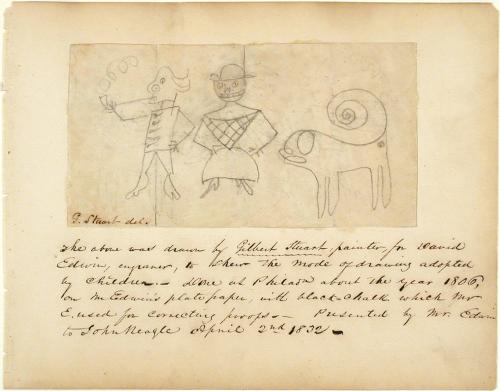 G. Stuart del.
The above was drawn by Gilbert Stuart, painter, for David
Edwin, engraver, to shew the mode of drawing adopted
by Children. - Done at Philada about the year 1806,
on Mr Edwin's plate paper, with black chalk which Mr
E. used for correcting proofs - Presented by Mr. Edwin
to John Neagle April 2nd 1832 -